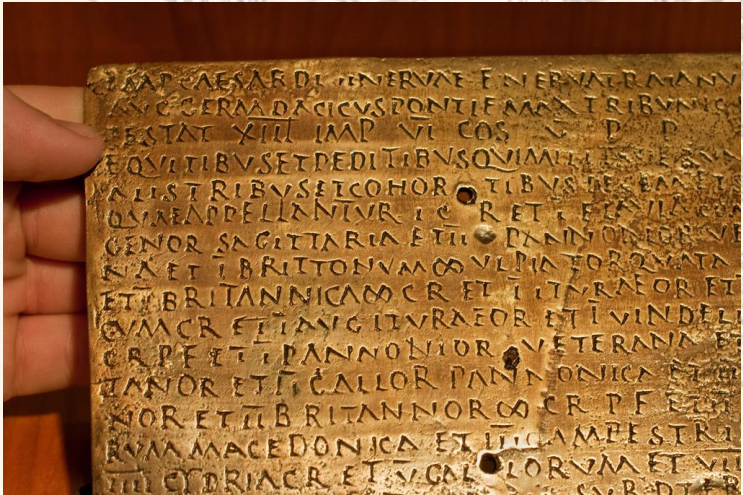 IMP CAESAR DIVI NERVAE F NERVA TRAIANV
AVG GERM DACICVS PONTIF MAX TRIBVNIC
TESTAT XIIII IMP V̅I̅ COS V̅ P P
EQVITIBVS ET PEDITIBVS QVI
ALIS TRIBVS ET COHOR TIBVS DECEM ET
QVAE APPELLANTVR I C R ET I
GENOR SAGITTARIA ET I̅I̅ PANNONIOR VE
NA ET I̅ BRITTONVM ∞ VLPIA TORQVATA
ET I̅ BRITANNICA ∞ C R ET I̅ ITVRAEOR ET
CVM C R ET I̅I̅ AVG ITVRAEOR ET I̅ VINDELI
C R P F ET I̅ PANNONIOR VETERANA ET
TANOR ET I̅I̅ GALLOR PANNONICA ET
NOR ET I̅I̅ BRITANNOR ∞ C R P F ET
RVM MACEDONICA ET I̅I̅I̅ CAMPESTRI
CYPRIA C R ET V̅ GAL LORVM ET